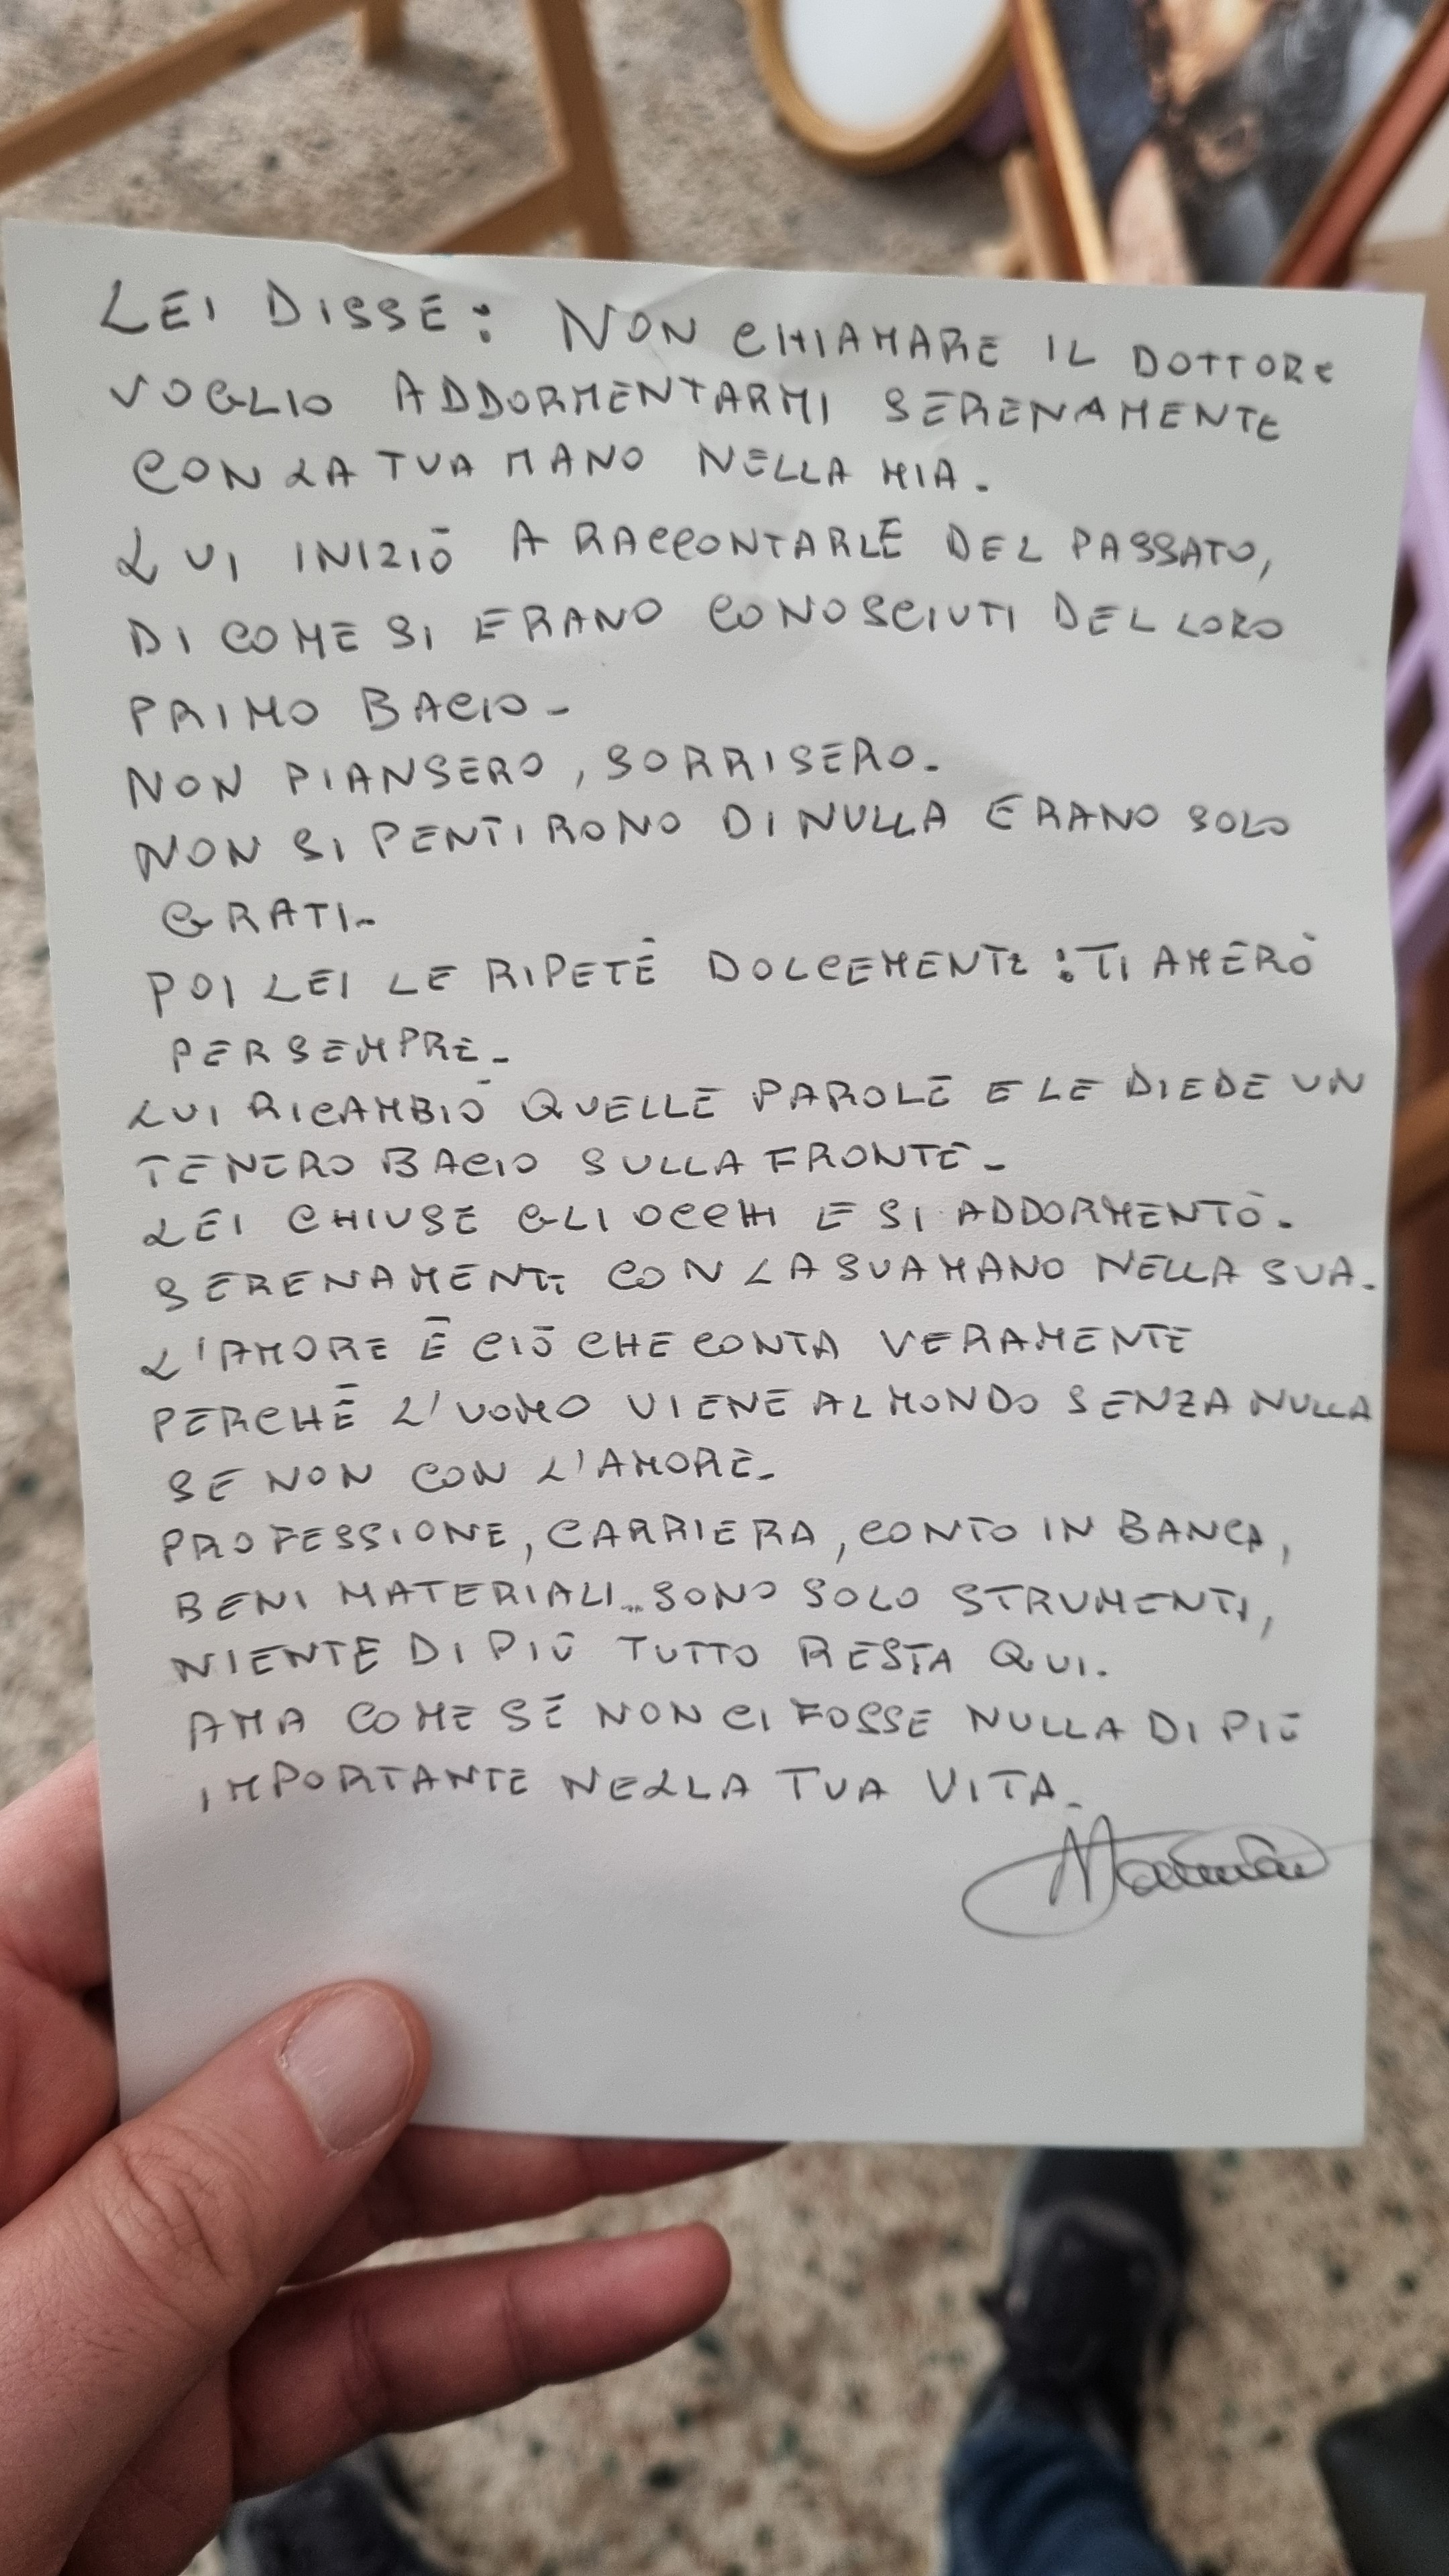 LEI DISSE: NON CHIAMARE IL DOTTORE
VOGLIO ADDORMENTARMI SERENAMENTE
CON LA TUA MANO NELLA MIA.
LUI INIZIÒ A RACCONTARLE DEL PASSATO,
DI COME SI ERANO CONOSCIUTI DEL LORO
PRIMO BACIO-
NON PIANSERO, SORRISERO.
NON SI PENTIRONO DI NULLA ERANO SOLO
GRATI-
POI LEI LE RIPETÉ DOLCEMENTE: TI AMERÒ
PER SEMPRE-
LUI RICAMBIÒ QUELLE PAROLE E LE DIEDE UN
TENERO BACIO SULLA FRONTE-
LEI CHIUSE GLI OCCHI E SI ADDORMENTÒ.
SERENAMENTE CON LA SUA MANO NELLA SUA.
L'AMORE È CIÒ CHE CONTA VERAMENTE
PERCHÉ L'UOMO VIENE AL MONDO SENZA NULLA
SE NON CON L'AMORE-
PROFESSIONE, CARRIERA, CONTO IN BANCA,
BENI MATERIALI... SONO SOLO STRUMENTI,
NIENTE DI PIÙ TUTTO RESTA QUI.
AMA COME SE NON CI FOSSE NULLA DI PIÙ
IMPORTANTE NELLA TUA VITA-